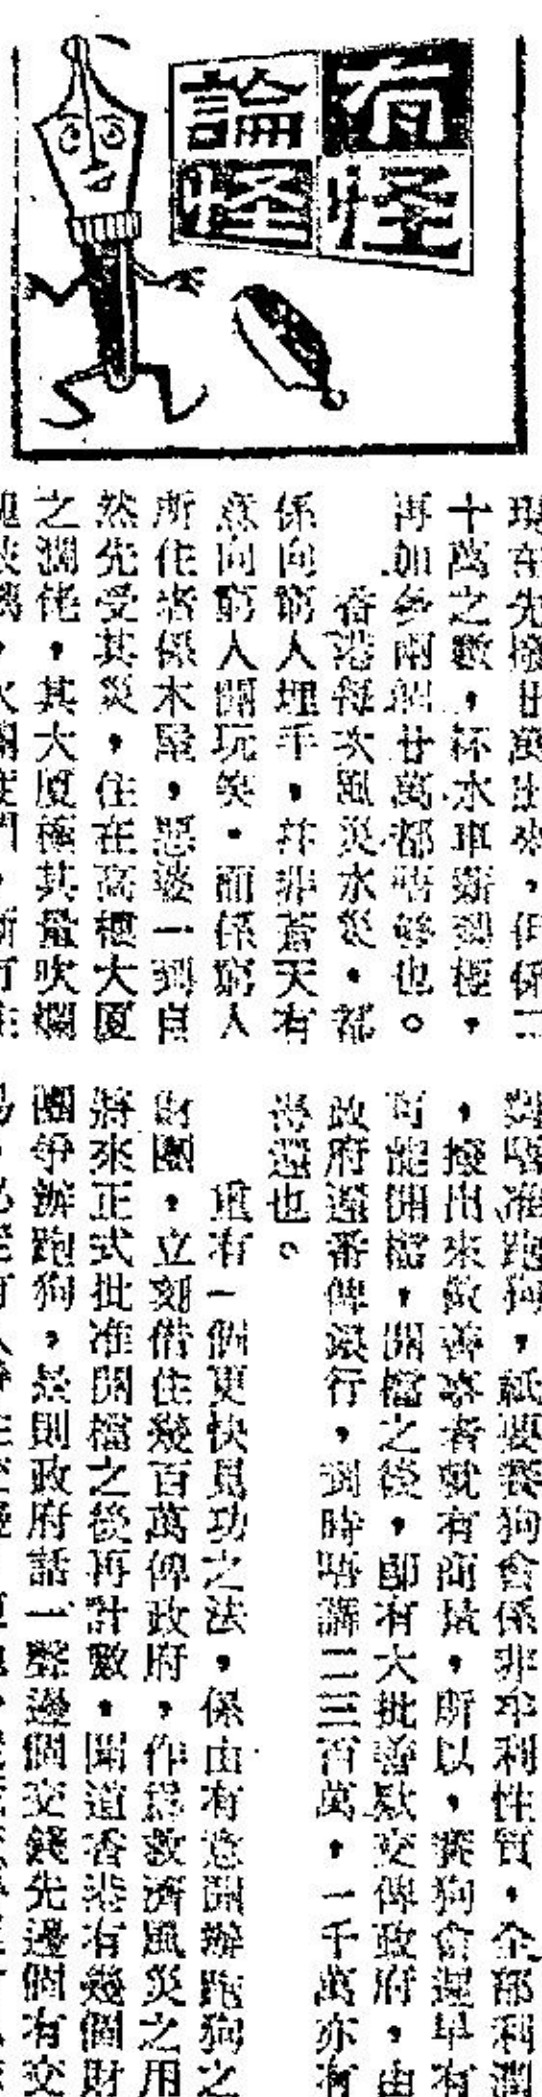 有怪
論怪
現在先撥廿萬出來，但係二
十萬之數，杯水車薪到極，
再加多兩個廿萬都唔夠也。
香港每次風災水災，都
係向窮人埋手，并非蒼天有
意向窮人開玩笑，而係窮人
所住者係木屋，惡婆一到自
然先受其災，住在高樓大厦
之濶佬，其大厦極其量吹爛
准跑狗，祇要賽狗會係非牟利性質，全部利潤
，撥出來做善事者就有商量，所以，賽狗會遲早有
可能開檔，開檔之後，即有大批善款交俾政府，由
政府還番俾銀行，到時唔講二三百萬，一千萬亦有
得還也。
重有一個更快見功之法，係由有意開辦跑狗之
財團，立刻借住幾百萬俾政府，作爲救濟風災之用
將來正式批准開檔之後再計數，聞道香港有幾個財
團爭辦跑狗，是則政府話一聲邊個交錢先邊個有交